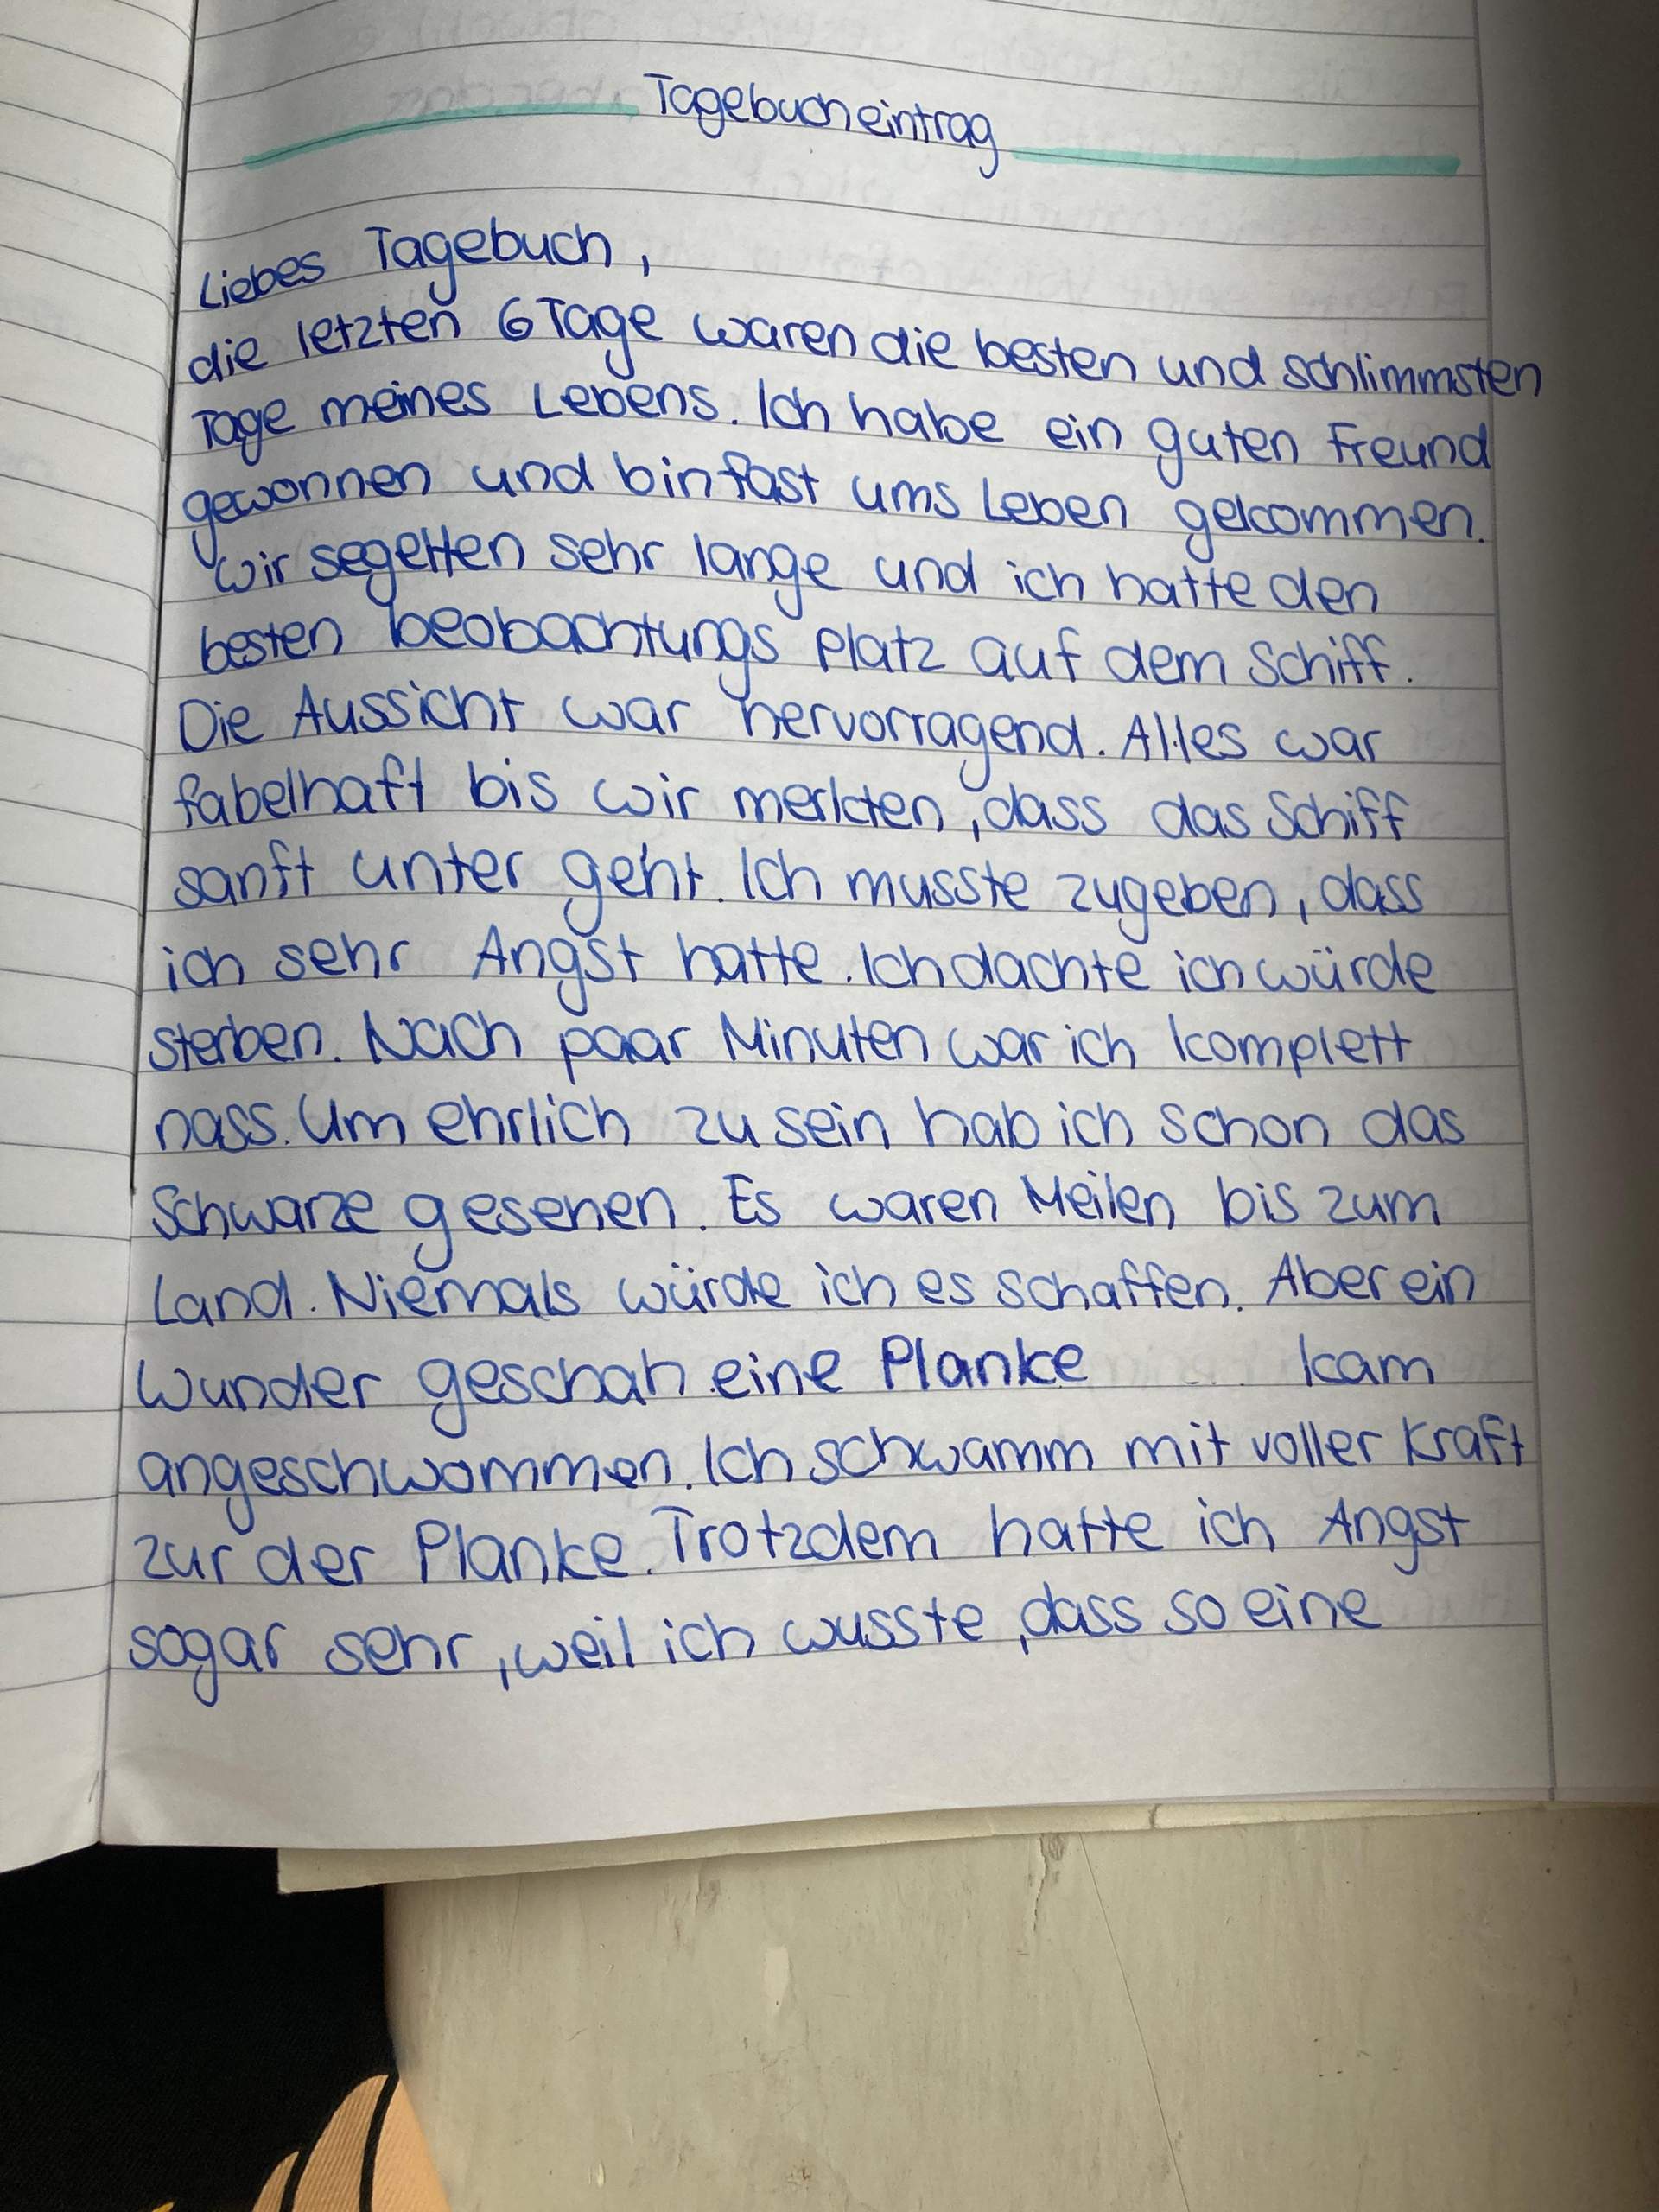 Tagebucheintrag
Liebes Tagebuch,
die letzten 6 Tage waren die besten und schlimmsten
Tage meines Lebens. Ich habe ein guten Freund
gewonnen und bin fast ums Leben gekommen.
Wir segelten sehr lange und ich hatte den
besten beobachtungs Platz auf dem Schiff.
Die Aussicht war hervorragend. Alles war
fabelhaft bis wir merkten, dass das Schiff
sanft unter geht. Ich musste zugeben, dass
ich sehr Angst hatte. Ich dachte ich würde
sterben. Nach paar Minuten war ich komplett
nass. Um ehrlich zu sein hab ich schon das
Schwarze gesehen. Es waren Meilen bis zum
Land. Niemals würde ich es schaffen. Aber ein
Wunder geschah eine Planke kam
angeschwommen. Ich schwamm mit voller Kraft
zur der Planke. Trotzdem hatte ich Angst
sogar sehr, weil ich wusste, dass so eine